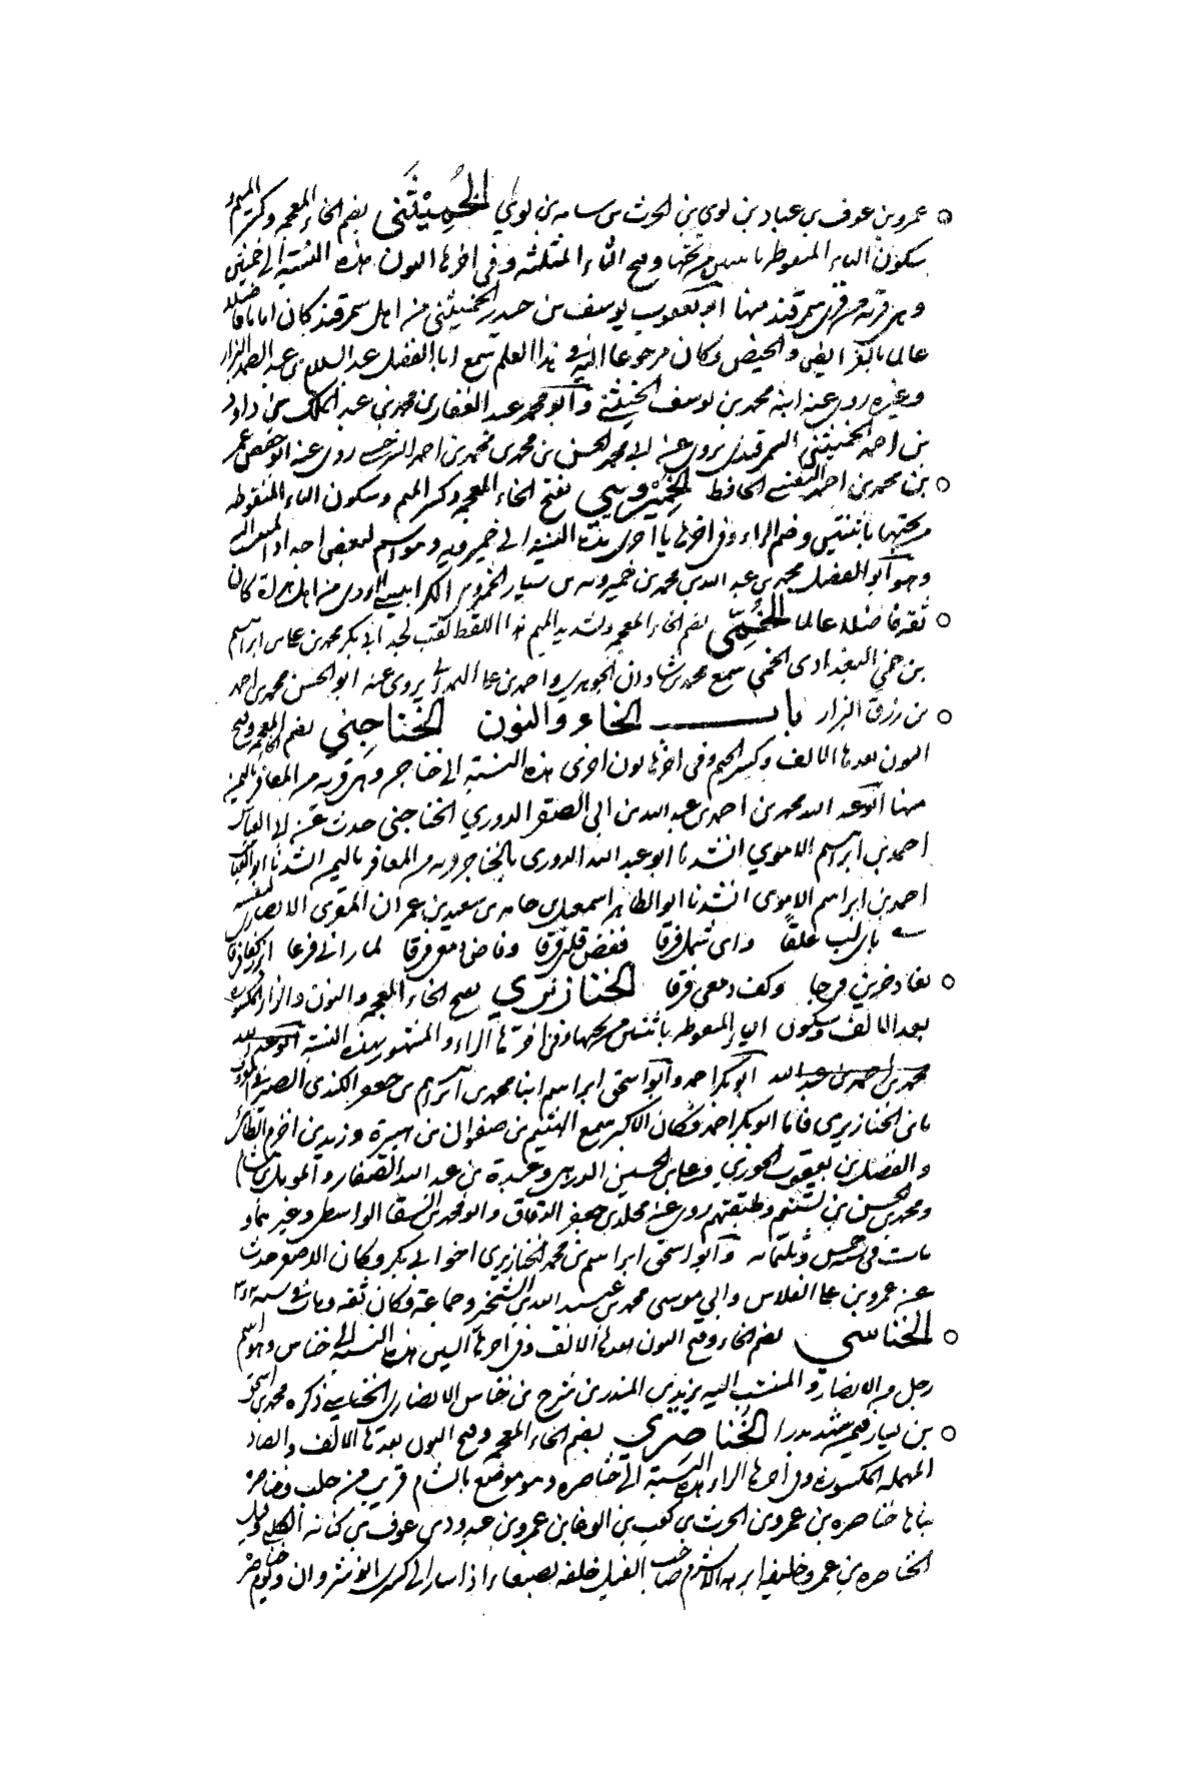 عمرو بن عوف بن عباد بن لوي بن الحرث بن سامه بن لوي الخُمِيْثَنى بضم الخاء المعجمه وكسر الميم و
سكون الياء المنقوطه باثنتين من تحتها وفتح الثاء المثلثه وفى اخرها النون هذه النسبة الى خميثن
وهى قريه من قرى سمرقند منها ابو يعقوب يوسف بن حيدر الخميثنى من اهل سمرقند كان اماما فاضلا
عالما بالفرايض والحيض وكان مرجوعا اليه فى هذا العلم سمع ابا الفضل عبد السلام بن عبد الصمد البزار
وغيره روى عنه ابنه محمد بن يوسف الخميثنى وابو محمد عبد الغفار بن محمد بن عبد الملك بن داود
بن احمد الخميثنى السمرقندى يروى عن ابى محمد الحسن بن محمد بن محمد بن احمد روى عنه ابو حفص عمر
بن محمد بن احمد النسفى الحافظ الخَمِيْرويي بفتح الخاء المعجمه وكسر الميم وسكون الياء المنقوطه
من تحتها باثنتين وضم الراء وفى اخرها يا اخرى هذه النسبة الى خميرويه وهو اسم لبعض اجداد المنتسب اليه
وهو ابو الفضل محمد بن عبد الله بن محمد بن خميرويه بن سيار الخميرويى الكرابيسى الهروى من اهل هراة كان
ثقه فاضلا عالما الخُمّى بضم الخاء المعجمه وتشديد الميم هذا اللفظ لقب لجد ابى بكر محمد بن على بن ابراهيم
بن خمى البغدادى الخمى سمع محمد بن شاذان الجوهرى واحمد بن على يروى عنه ابو الحسن محمد بن احمد
بن رزق البزار باب الخاء والنون الخُناجِني بضم الخاء المعجمه وفتح
النون بعدها الالف وكسر الجيم وفى اخرها نون اخرى هذه النسبة الى خناجن وهى قريه من المعافر باليمن
منها ابو عبد الله محمد بن احمد بن عبد الله بن ابى الصقر الدوري الخناجنى حدث عن ابى العباس
احمد بن ابراهيم الاموي انشدنا ابو عبد الله الدورى بالخناجن قريه من المعافر باليمن انشدنا ابو العباس
احمد بن ابراهيم الاموى انشدنا ابو الطاهر اسمعيل بن حامد بن سعيد بن عمران المقرى الانصارى لنفسه
باى لب علقا واى شمل فرقا ففض قلبى فرقا وفاض دمعى فرقا لما رانى فزعا
بعاد حزنى فرحا وكف دمعى فرقا الخنازيري بفتح الخاء المعجمه والنون والزاى المكسوره
بعد الالف وسكون الياء المنقوطه باثنتين من تحتها وفى اخرها الراء والمشهور بهذه النسبة ابو عبد الله
محمد بن احمد بن عبد الله ابو بكر احمد وابو اسحق ابراهيم ابنا محمد بن ابراهيم بن جعفر الكندى الصيرفى المعروف
بابن الخنازيرى فاما ابو بكر احمد فكان الاكبر سمع الهيثم بن صفوان بن هبيرة وزيد بن اخزم الطائى
والفضل بن يعقوب الجوزي وعلى بن الحسين الدرهمى وعبدة بن عبد الله الصفار والمومل بن هشام
ومحمد بن الحسن بن تسنيم وطبقتهم روى عنه مخلد بن جعفر الدقاق وابو محمد بن السقا الواسطى وغيرهما و
مات فى سنة خمس وثلثمايه وابو اسحق ابراهيم بن محمد الخنازيرى اخو ابى بكر وكان الاصغر حدث
عن عمرو بن على الفلاس وابي موسى محمد بن وجماعة وكان ثقه ومات فى سنة
الخناسي بضم الخاء وفتح النون بعدها الالف وفى اخرها السين هذه النسبة الى خناس وهو اسم
رجل من الانصار والمنتسب اليه يزيد بن المنذر بن سرح بن خناس الانصارى الخناسى ذكره محمد بن اسحق
بن يسار فيمن شهد بدرا الخُناصري بضم الخاء المعجمه وفتح النون بعدها الالف والصاد
المهمله المكسوره وفى اخرها الراء هذه النسبة الى خناصره وهو موضع بالشام قريب من حلب وخناصره
بناها خناصره بن عمرو بن الحرث بن كعب بن الوغا بن عمرو بن عبد ود بن عوف بن كنانه الكلبى وقيل
الخناصره بن عمرو خليفه ابرهه الاشرم صاحب الفيل خلفه بصنعاء اذ سار الى كسرى انوشروان وقيل خناصر